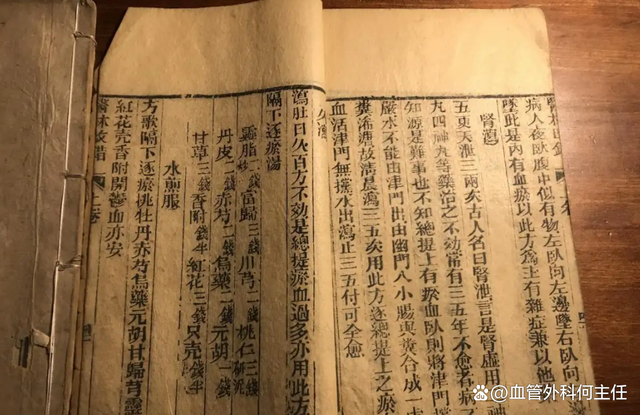 病人夜臥腹中似有物左臥向左邊墜右臥向
墜此是內有血瘀以此方爲主有雜症兼以他
腎瀉
五更天泄三兩次古人名曰腎泄言是腎虛用
丸四神丸等藥治之不效常有三五年不愈者病不
知源是難事也不知總提上有瘀血臥則將津門
嚴水不能由津門出由幽門入小腸與糞合成一
糞溏泄故清晨瀉三五次用此方逐總提上之瘀
血活津門無擋水出瀉止三五付可全愈
久瀉
瀉肚日久百方不效是總提瘀血過多亦用此方
隔下逐瘀湯
靈脂二錢炒 當歸三錢 川芎二錢 桃仁三錢研泥
丹皮二錢 赤芍二錢 烏藥二錢 元胡一錢
甘草三錢 香附錢半 紅花三錢 只壳錢半
水煎服
方歌隔下逐瘀桃牡丹赤芍烏藥元胡甘歸芎靈
紅花壳香附開鬱血亦安
醫林改錯 上卷
百家号/血管外科何主任